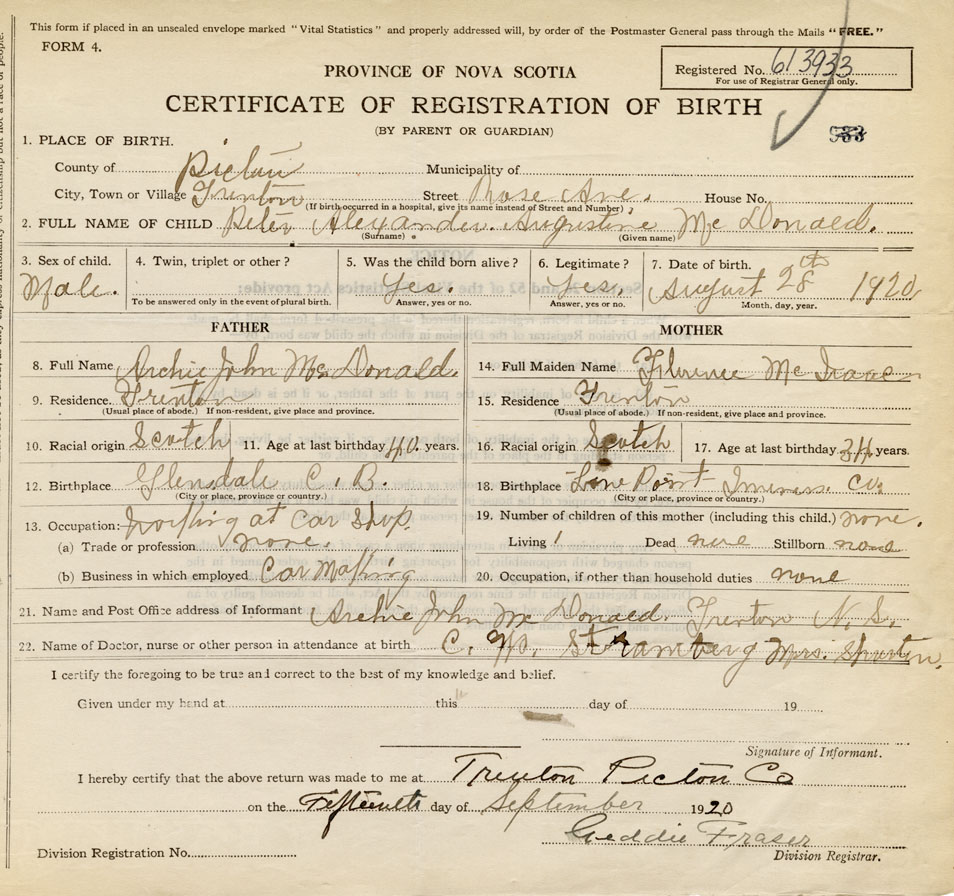 This form if placed in an unsealed envelope marked "Vital Statistics" and properly addressed will, by order of the Postmaster General pass through the Mails "FREE."
FORM 4.
Registered No. 613933
For use of Registrar General only.
PROVINCE OF NOVA SCOTIA
CERTIFICATE OF REGISTRATION OF BIRTH
(BY PARENT OR GUARDIAN)
933
1. PLACE OF BIRTH.
County of Pictou Municipality of
City, Town or Village Trenton Street Rose Ave. House No.
(If birth occurred in a hospital, give its name instead of Street and Number)
2. FULL NAME OF CHILD Peter Alexander Augustine Mc Donald.
(Surname) (Given name)
3. Sex of child. 4. Twin, triplet or other? 5. Was the child born alive? 6. Legitimate? 7. Date of birth.
Male. Yes. Yes. August 28th 1920
To be answered only in the event of plural birth. Answer, yes or no. Answer, yes or no. Month, day, year.
FATHER MOTHER
8. Full Name Archie John Mc Donald. 14. Full Maiden Name Florence Mc Isaac
9. Residence. Trenton 15. Residence Trenton
(Usual place of abode.) If non-resident, give place and province. (Usual place of abode.) If non-resident, give place and province.
10. Racial origin Scotch 11. Age at last birthday 40. years. 16. Racial origin Scotch 17. Age at last birthday 34 years.
12. Birthplace Glendale C. B. 18. Birthplace Point Co.
(City or place, province or country.) (City or place, province or country.)
13. Occupation: Working at Car Shop. 19. Number of children of this mother (including this child.) none.
(a) Trade or profession none. Living 1 Dead none Stillborn none
(b) Business in which employed Car Making 20. Occupation, if other than household duties none
21. Name and Post Office address of Informant Archie John Mc Donald. Trenton N. S.
22. Name of Doctor, nurse or other person in attendance at birth C. Stramberg Mrs.
I certify the foregoing to be true and correct to the best of my knowledge and belief.
Given under my hand at this day of 19
Signature of Informant.
I hereby certify that the above return was made to me at Trenton Picton Co
on the Fifteenth day of September 1920
Geddie Fraser
Division Registration No. Division Registrar.